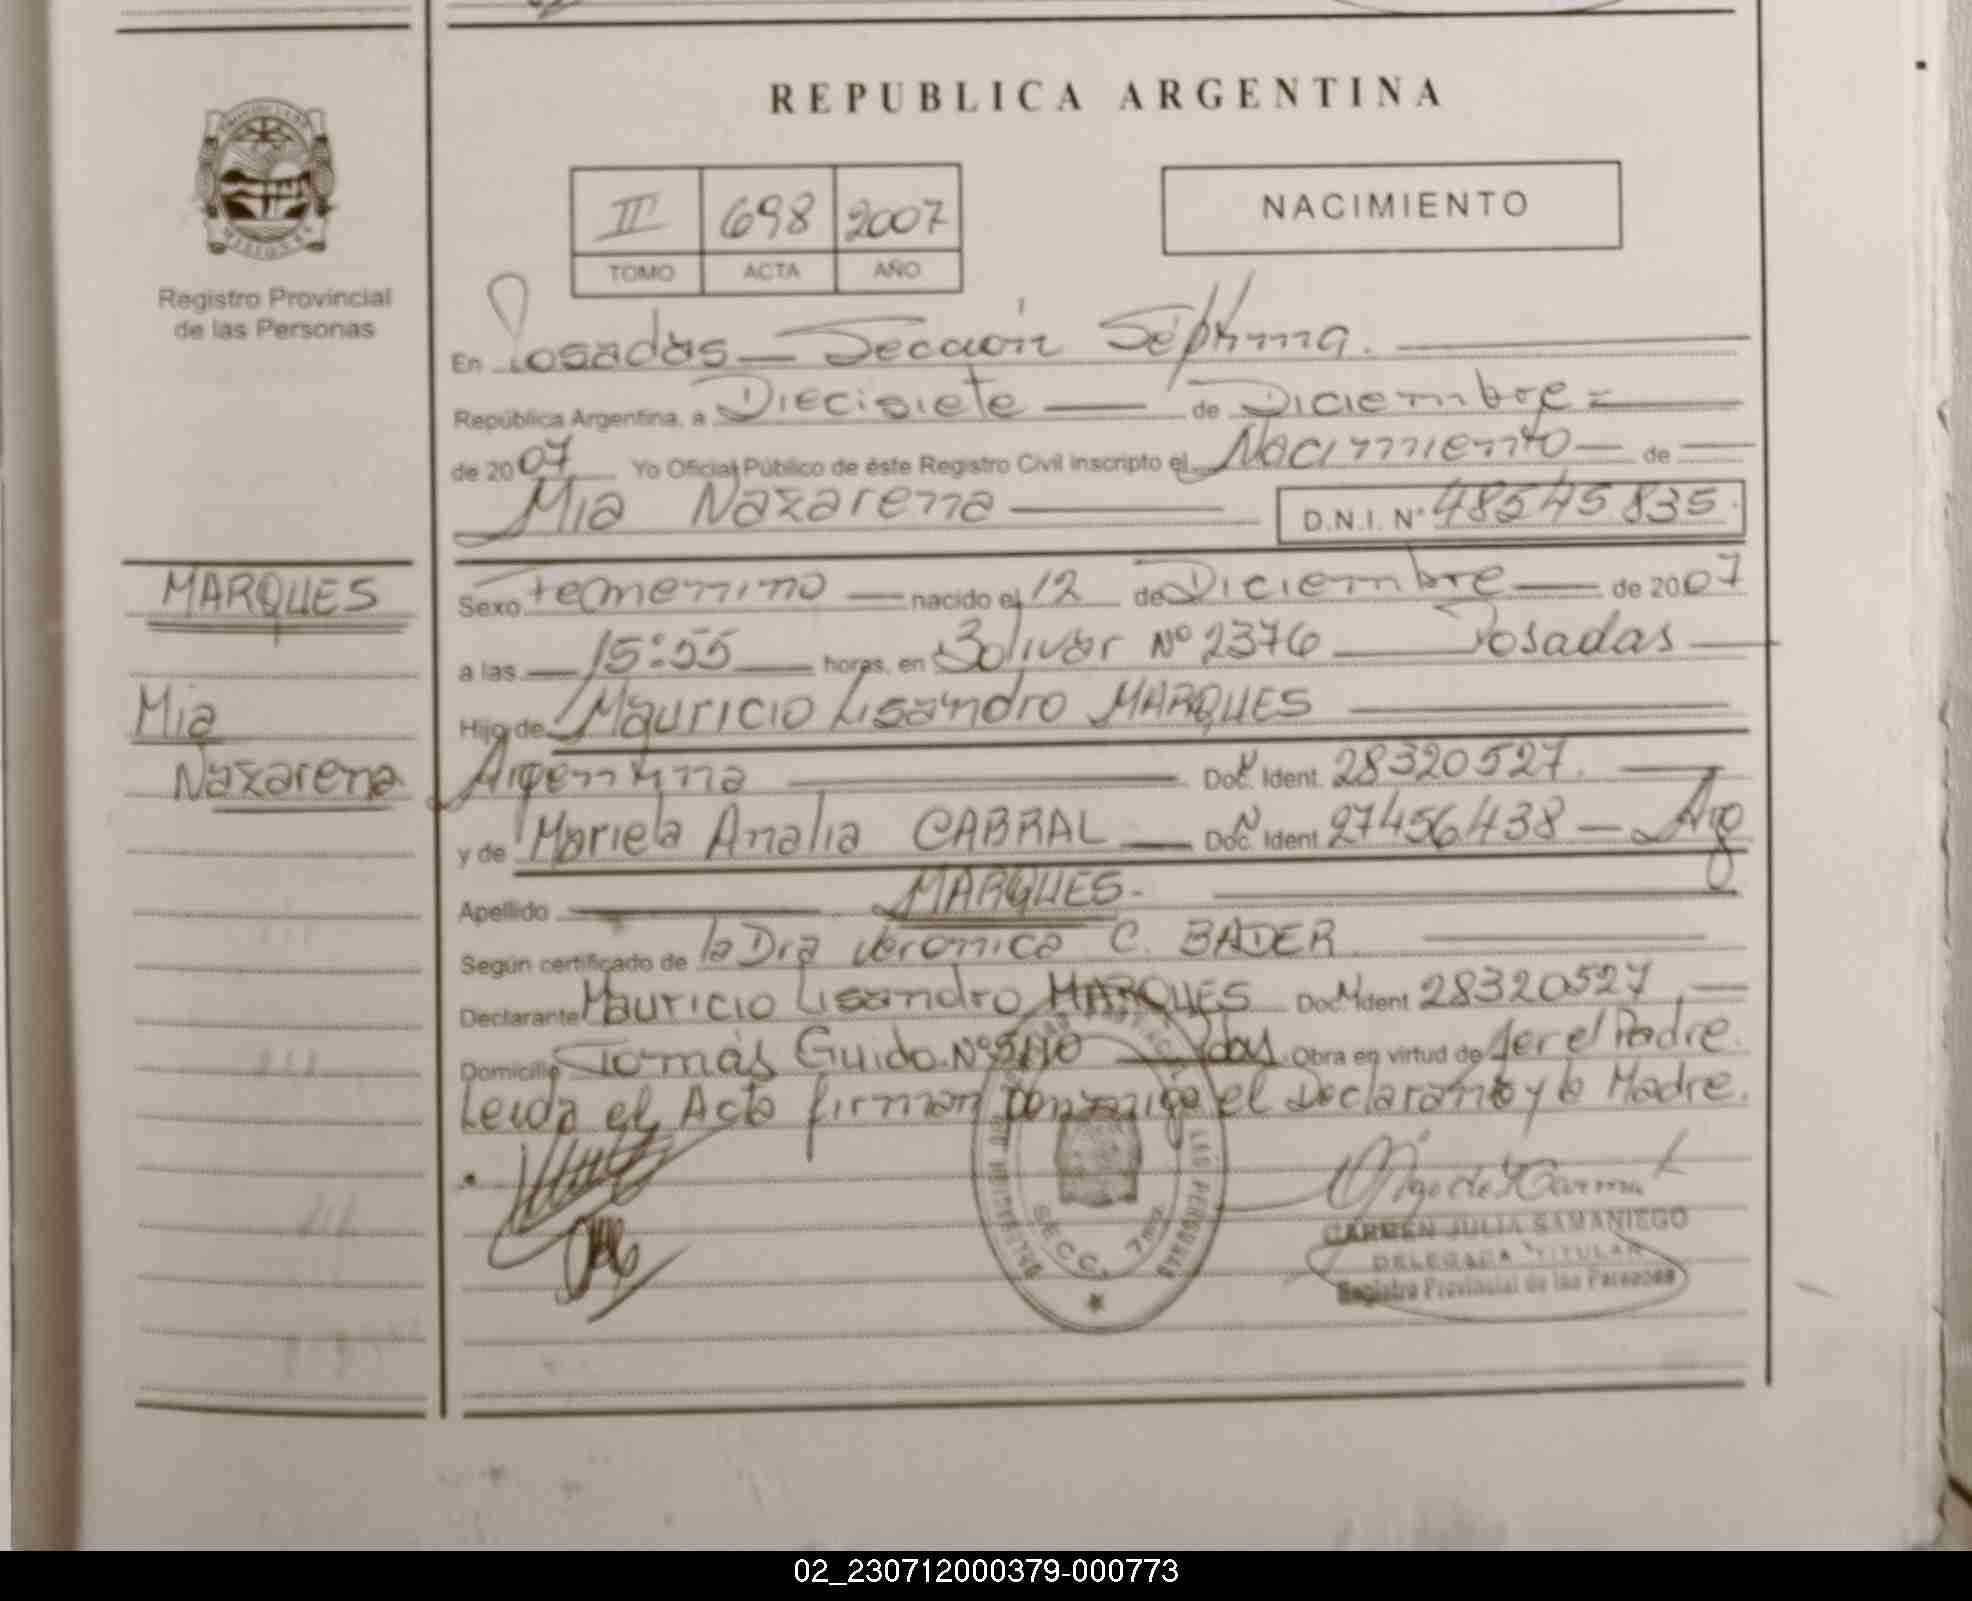 REPUBLICA ARGENTINA
III 698 2007
TOMO ACTA AÑO
NACIMIENTO
Registro Provincial
de las Personas
En Posadas — Sección Séptima.
República Argentina, a Diecisiete — de Diciembre =
de 2007 Yo Oficial Público de éste Registro Civil inscripto el Nacimiento — de —
Mia Nazarena — D.N.I. N° 48545835.
MARQUES
Mia
Nazarena
Sexo Femenino — nacido el 12 de Diciembre — de 2007
a las — 15:55 — horas, en Bolivar Nº 2376 — Posadas —
Hijo de Mauricio Lisandro MARQUES —
Argentina — Doc. Ident. 28320527. —
y de Mariela Analia CABRAL — Doc. Ident 27456438 — Arg
Apellido — MARQUES. —
Según certificado de la Dra Veronica C. BADER —
Declarante Mauricio Lisandro MARQUES Doc. Ident 28320527, —
Domicilio Tomás Guido Nº — Pdas. Obra en virtud de ser el Padre.
Leida el Acta firman conmigo el Declarante y la Madre.
SECC. 7ma.
CARMEN JULIA SAMANIEGO
DELEGADA TITULAR
Registro Provincial de las Personas
02_230712000379-000773